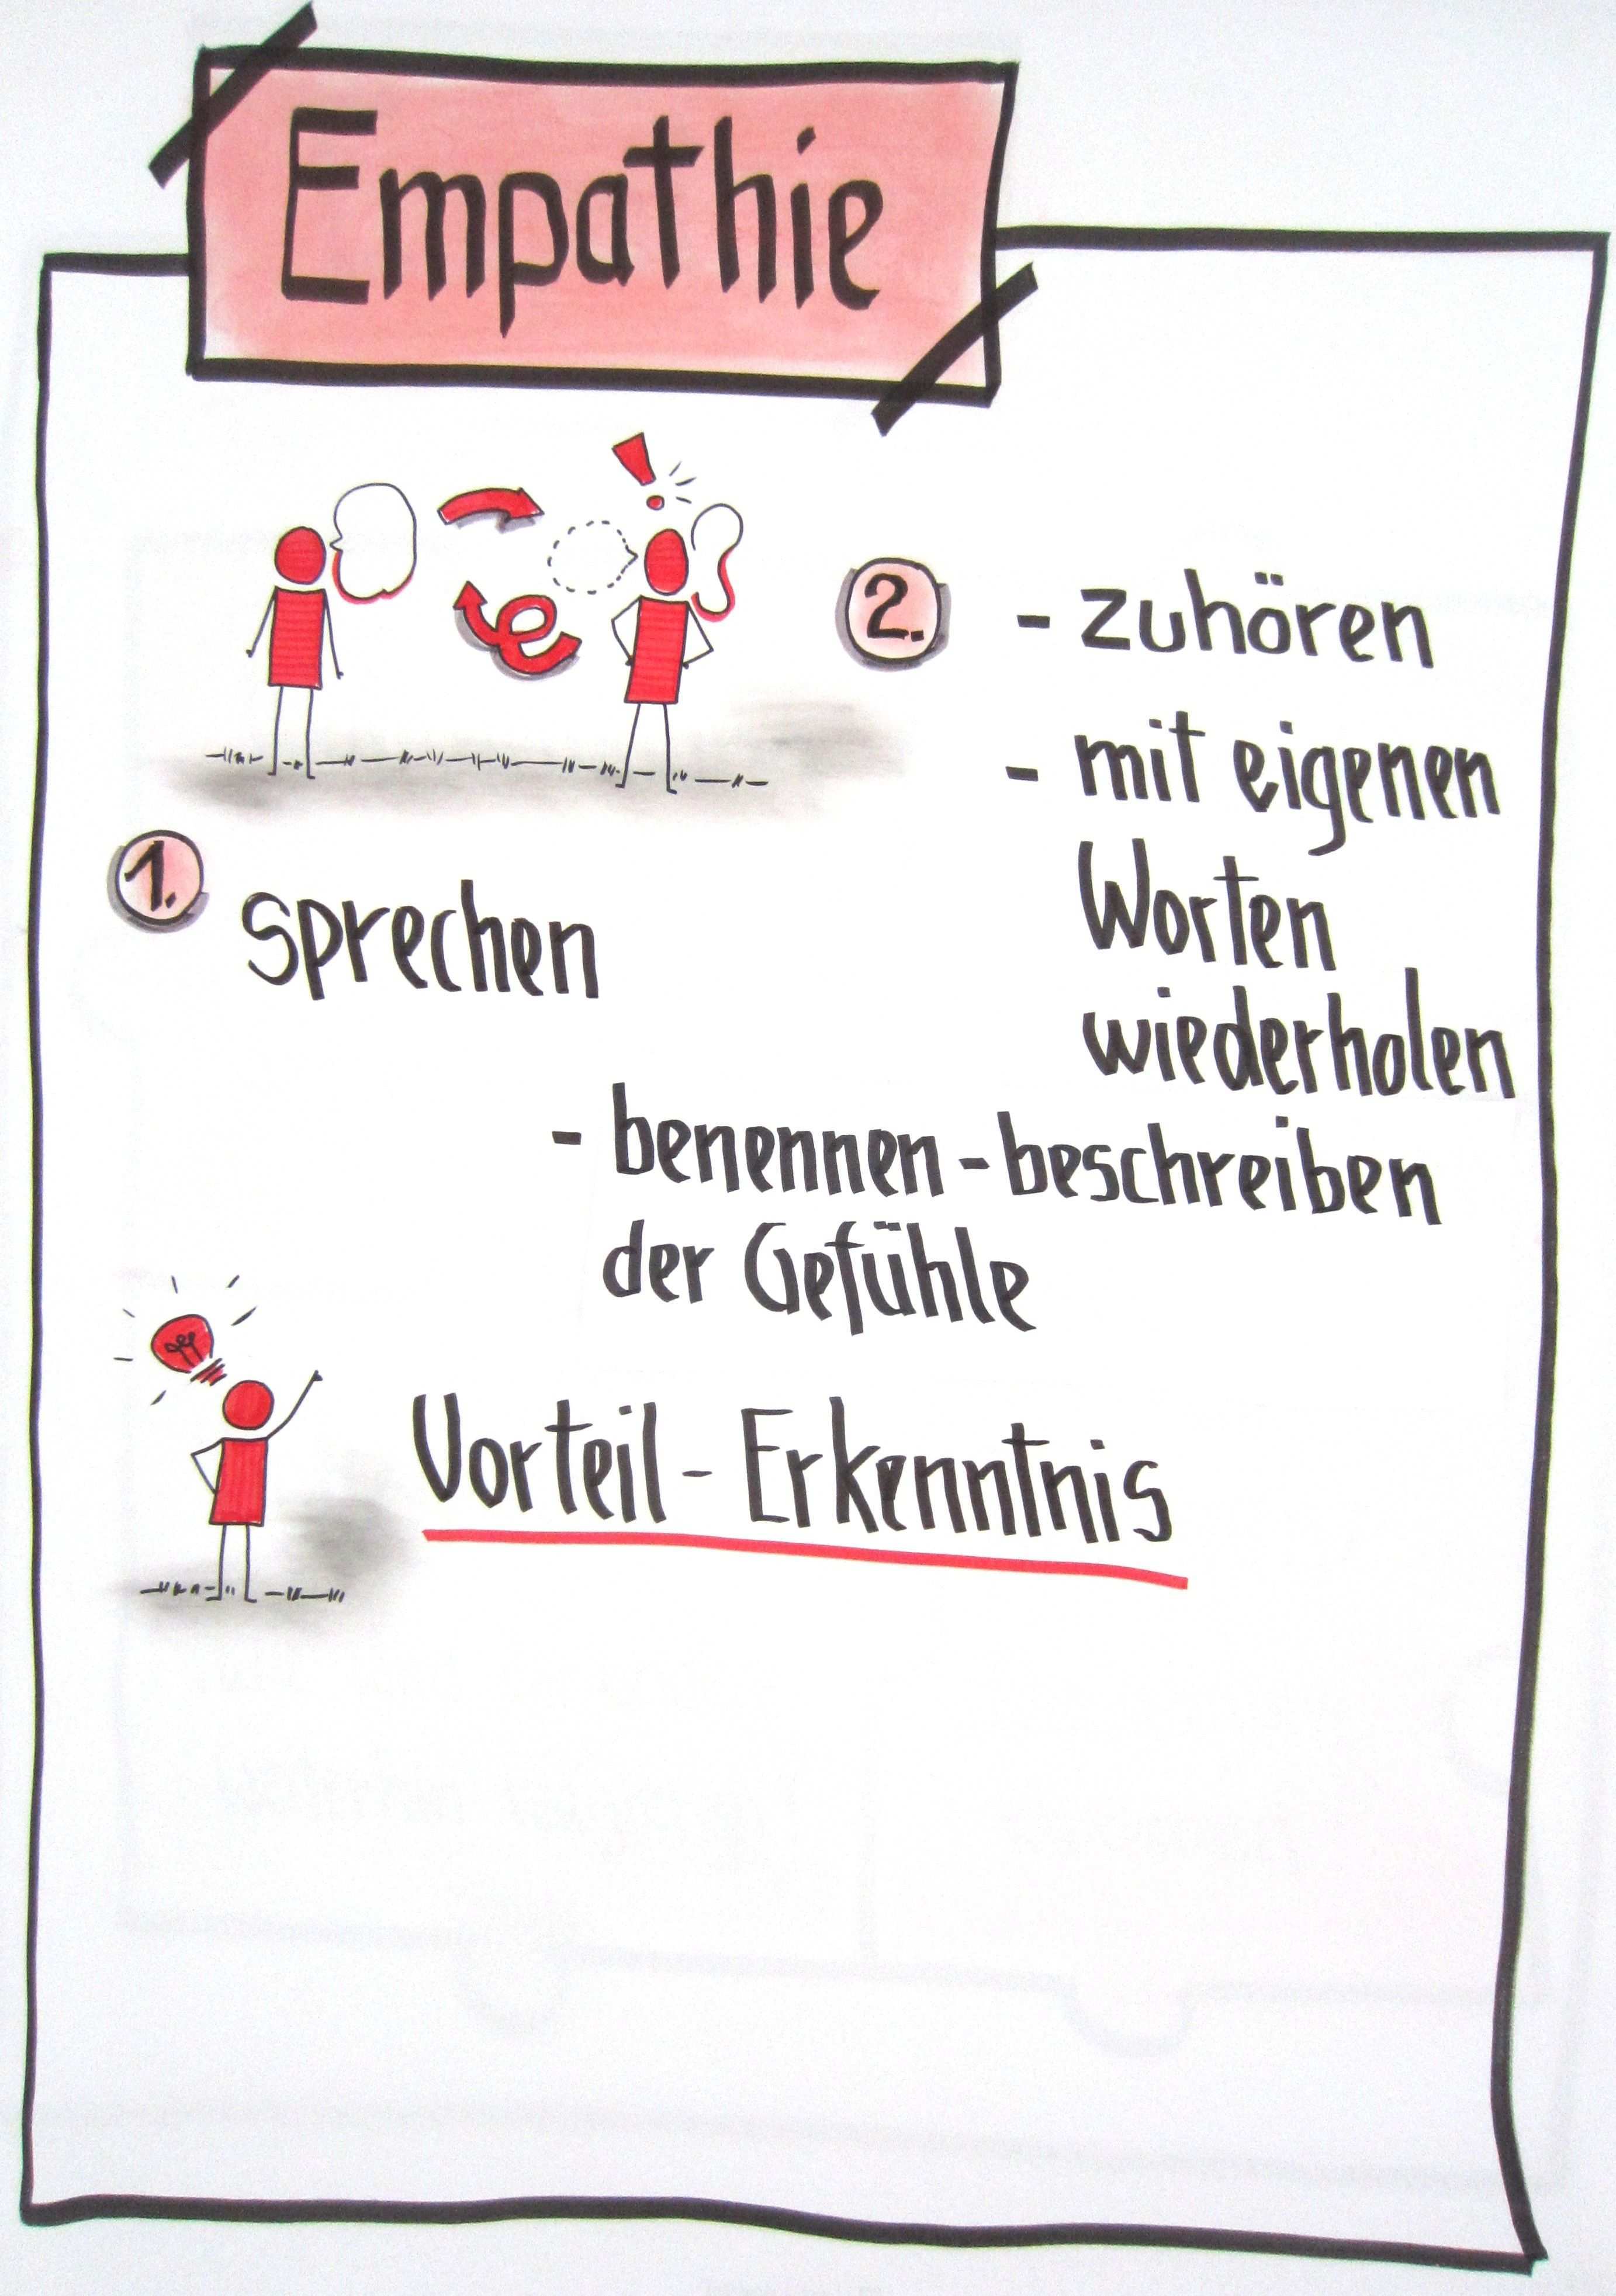 Empathie
!
1.
sprechen
2.
- zuhören
- mit eigenen
Worten
wiederholen
- benennen - beschreiben
der Gefühle
Vorteil - Erkenntnis